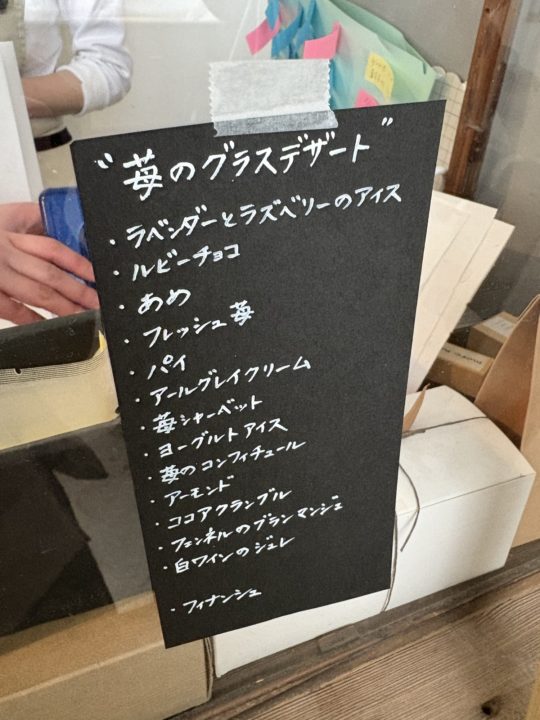 “苺のグラスデザート”
・ラベンダーとラズベリーのアイス
・ルビーチョコ
・あめ
・フレッシュ苺
・パイ
・アールグレイクリーム
・苺シャーベット
・ヨーグルトアイス
・苺のコンフィチュール
・アーモンド
・ココアクランブル
・フェンネルのブランマンジェ
・白ワインのジュレ
・フィナンシェ